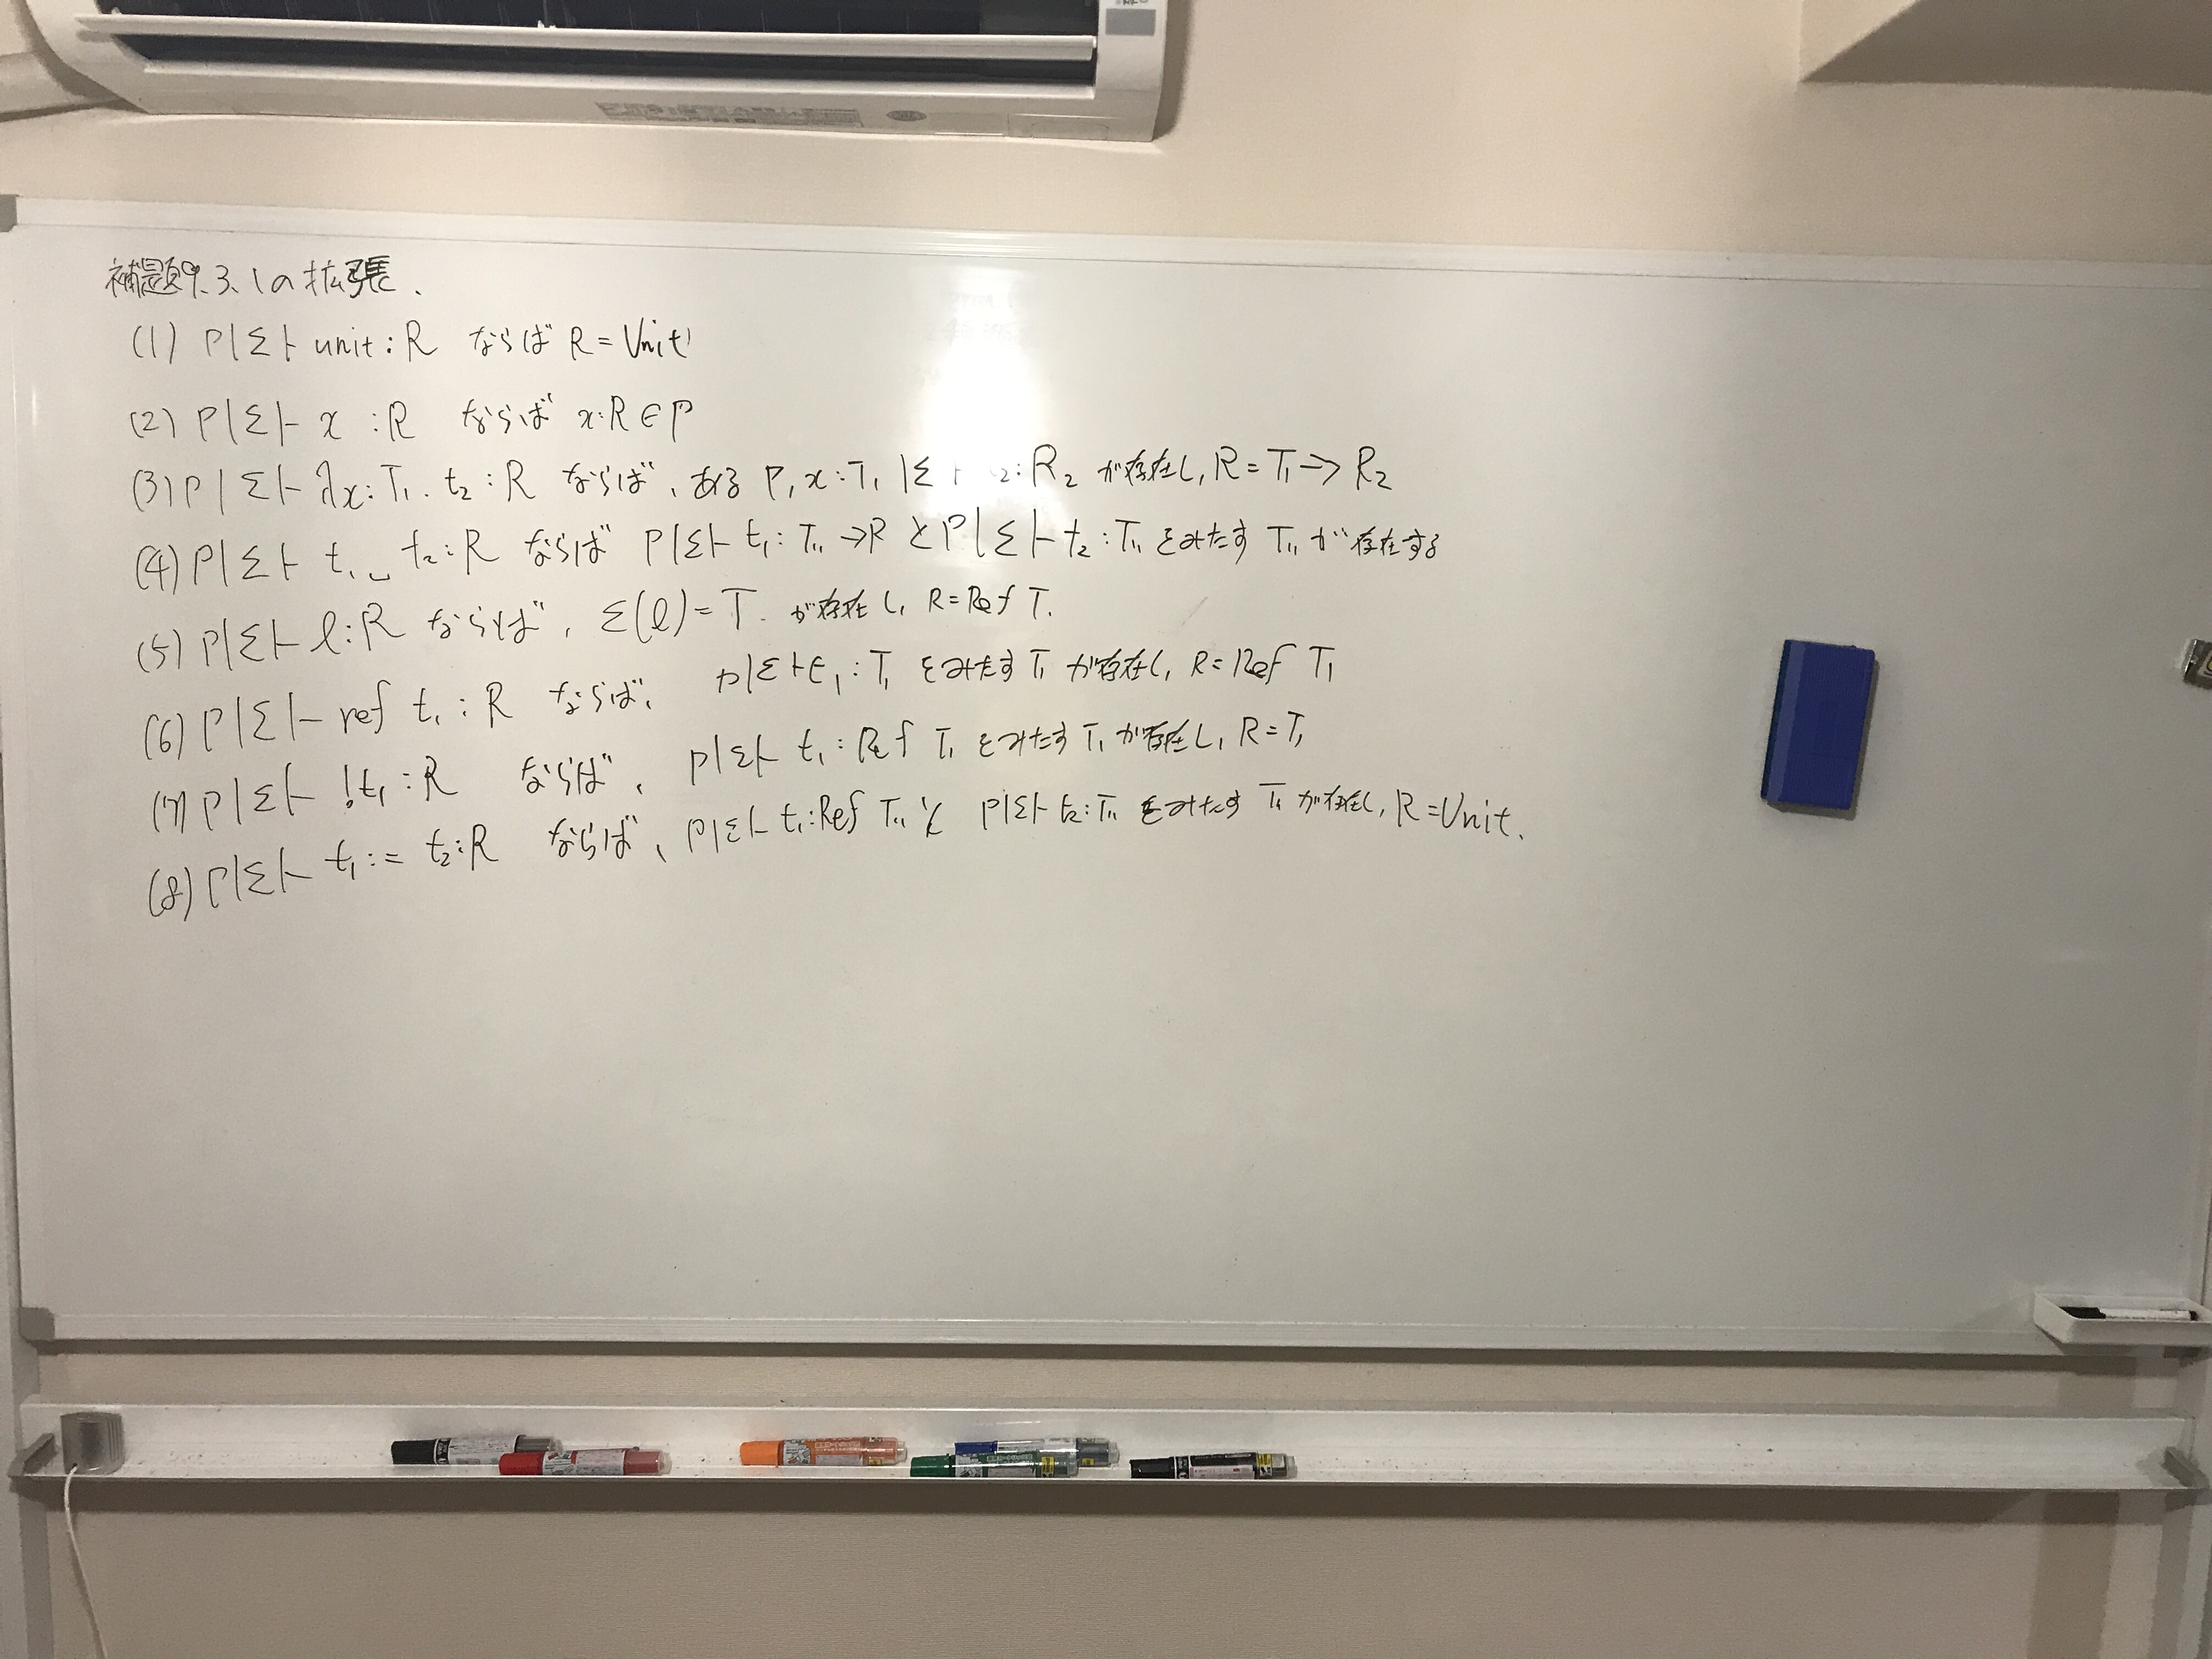 補題9.3.1の拡張.
(1) Γ|Σ⊢ unit:R ならば R=Unit
(2) Γ|Σ⊢ x :R ならば x:R∈Γ
(3) Γ|Σ⊢ λx:T₁. t₂:R ならば、ある Γ,x:T₁|Σ⊢ ₂:R₂ が存在し, R=T₁→R₂
(4) Γ|Σ⊢ t₁␣t₂:R ならば Γ|Σ⊢ t₁:T₁₁→R と Γ|Σ⊢ t₂:T₁₁ をみたす T₁₁ が存在する
(5) Γ|Σ⊢ l:R ならば, Σ(l)=T. が存在し, R=Ref T.
(6) Γ|Σ⊢ ref t₁:R ならば、 Γ|Σ⊢t₁:T₁ をみたす T₁ が存在し, R=Ref T₁
(7) Γ|Σ⊢ !t₁:R ならば、 Γ|Σ⊢ t₁:Ref T₁ をみたす T₁ が存在し, R=T₁
(8) Γ|Σ⊢ t₁:=t₂:R ならば、 Γ|Σ⊢ t₁:Ref T₁₁ と Γ|Σ⊢ t₂:T₁₁ をみたす T₁₁ が存在し, R=Unit.